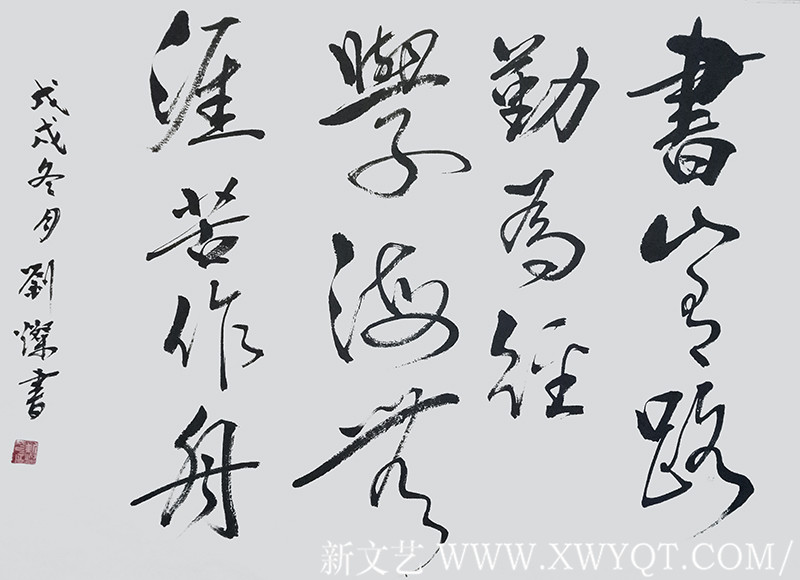 書山有路
勤為徑
學海無
涯苦作舟
戊戌冬月劉燦書
新文艺 WWW.XWYQT.COM/